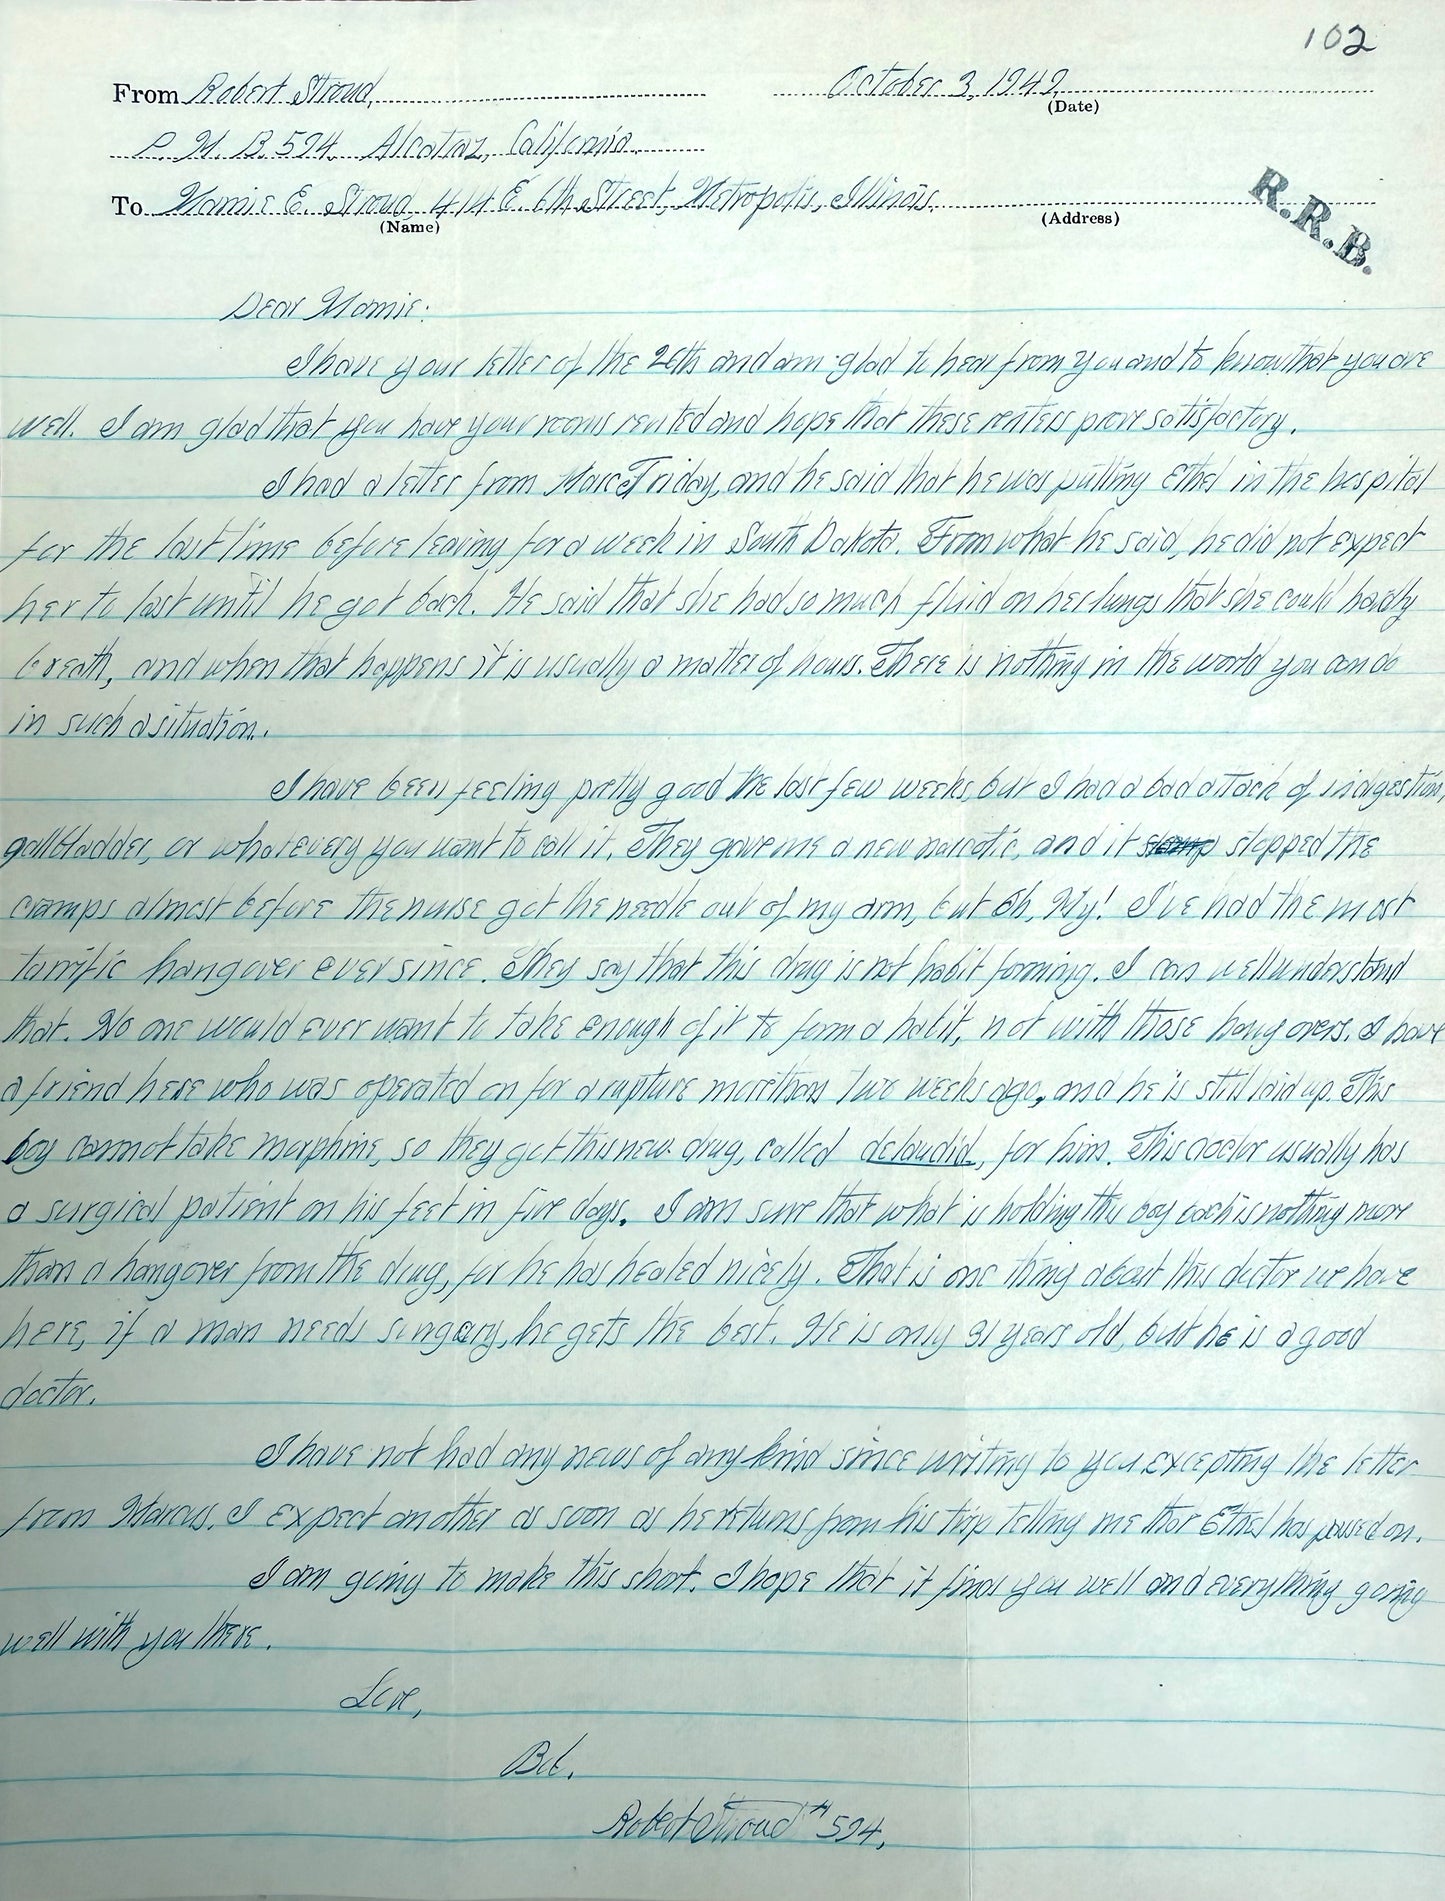 102
From Robert Stroud, October 3, 1949.
(Date)
P. M. B. 594. Alcatraz, California.
R.R.B.
To Mamie E. Stroud, 414 E. 6th Street, Metropolis, Illinois.
(Name) (Address)
Dear Mamie:
I have your letter of the 26th and am glad to hear from you and to know that you are
well. I am glad that you have your rooms rented and hope that these renters prove satisfactory.
I had a letter from Marc Friday, and he said that he was putting Ethel in the hospital
for the last time before leaving for a week in South Dakota. From what he said, he did not expect
her to last until he got back. He said that she had so much fluid on her lungs that she could hardly
breath, and when that happens it is usually a matter of hours. There is nothing in the world you can do
in such a situation.
I have been feeling pretty good the last few weeks, but I had a bad attack of indigestion,
gallbladder, or whatevery you want to call it. They gave me a new narcotic, and it stopped the
cramps almost before the nurse got the needle out of my arm, but Oh, My! I've had the most
tarrific hangover ever since. They say that this drug is not habit forming. I can well understand
that. No one would ever want to take enough of it to form a habit, not with those hangovers. I have
a friend here who was operated on for a rupture more than two weeks ago, and he is still laid up. This
boy cannot take morphine, so they got this new drug, called delaudid, for him. This doctor usually has
a surgical patient on his feet in five days. I am sure that what is holding this boy back is nothing more
than a hangover from the drug, for he has healed nicely. That is one thing about this doctor we have
here, if a man needs surgery, he gets the best. He is only 31 years old, but he is a good
doctor.
I have not had any news of any kind since writing to you excepting the letter
from Marcus. I expect another as soon as he returns from his trip telling me that Ethel has passed on.
I am going to make this short. I hope that it finds you well and everything going
well with you there.
Love,
Bob.
Robert Stroud #594,